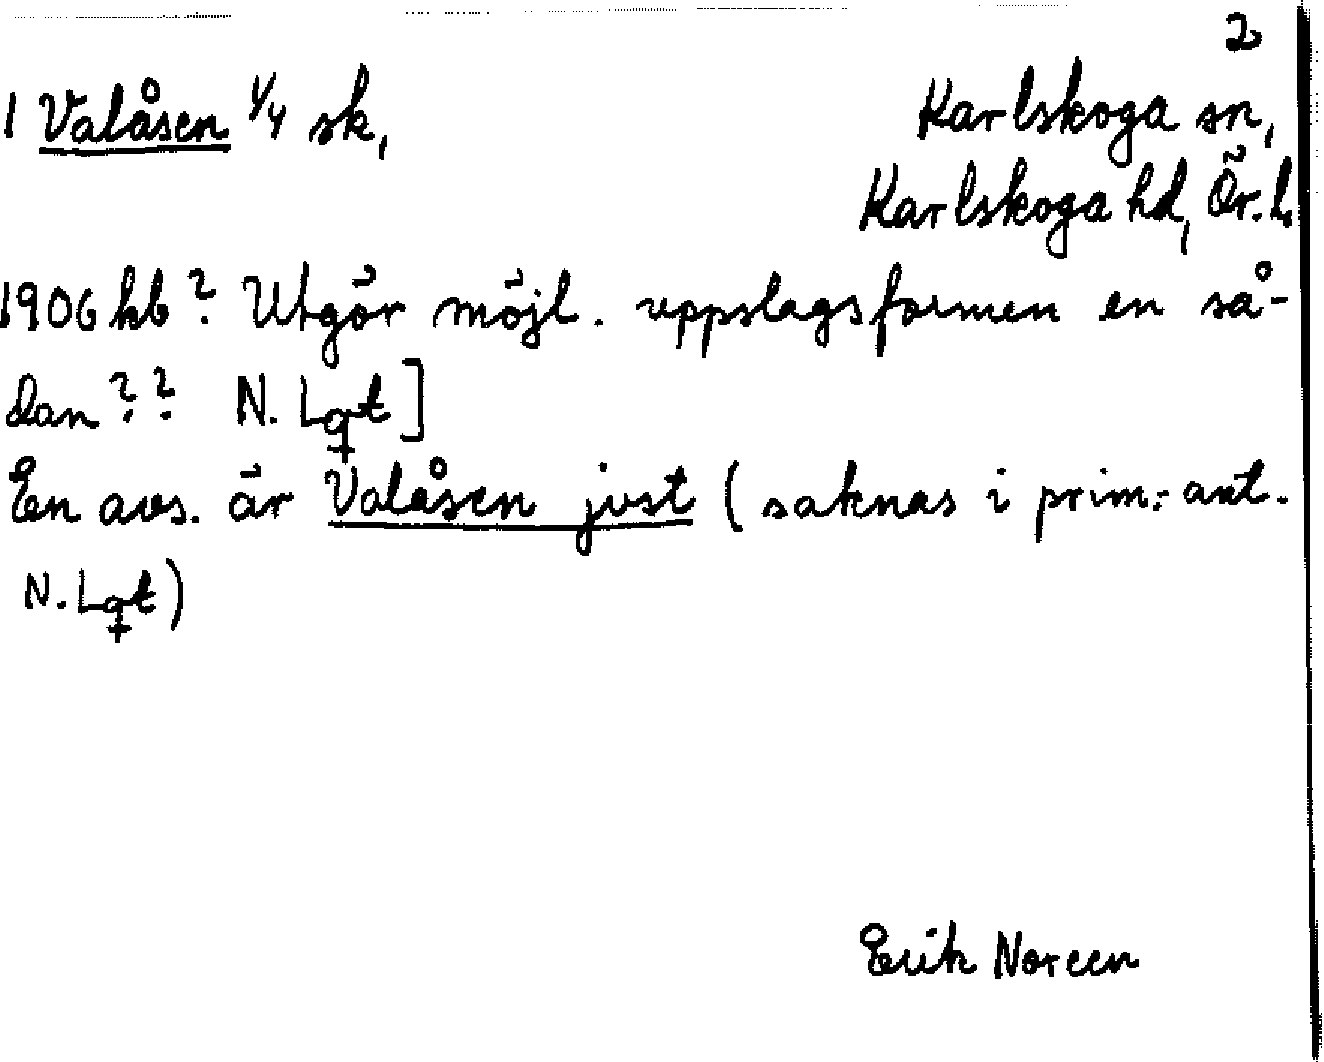 2
1 Valåsen 1/4 sk, Karlskoga sn,
Karlskoga hd, Ör. l.
1906 hb? Utgör möjl. uppslagsformen en så-
dan?? N. Lqt]
En avs. är Valåsen just (saknas i prim.-ant.
N. Lqt)
Erik Noreen